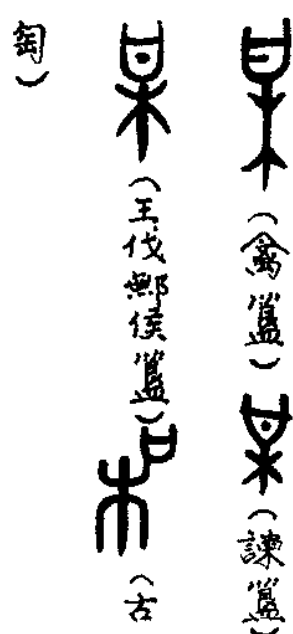 (禽簋)(諫簋)
(王伐鄦侯簋)(古
匋)